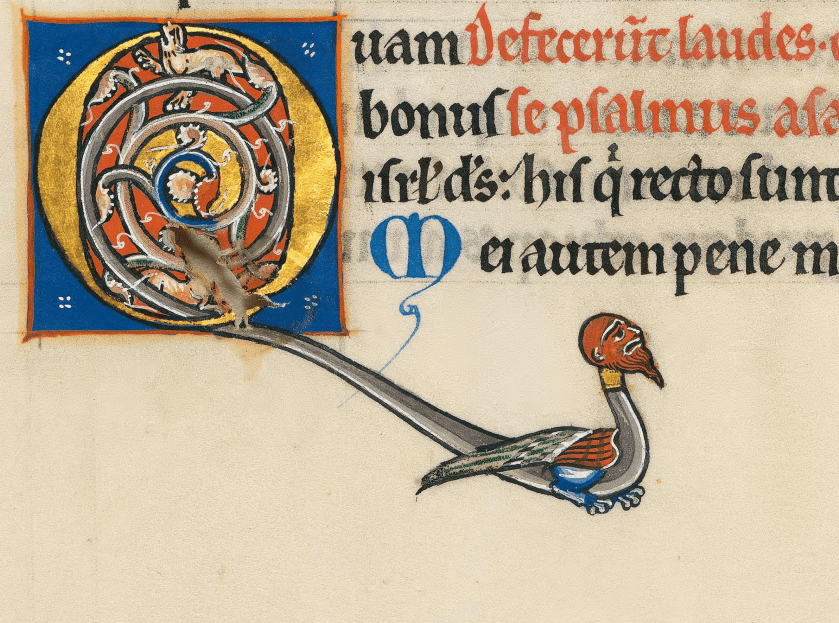 Quam Defecerūt laudes.
bonuſ ſe pſalmus aſa
iſrł dſ: hiſ q̇ recto ſunt
Mei autem pene m